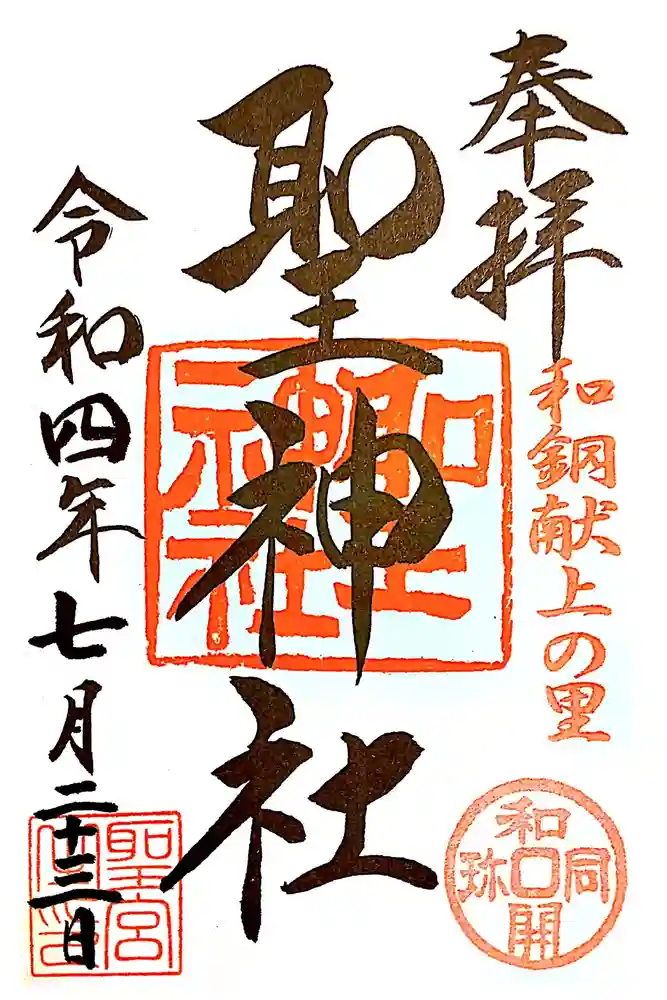 奉拝
和銅献上の里
和同開珎
聖神社
聖神社
令和四年七月二十三日
聖宮